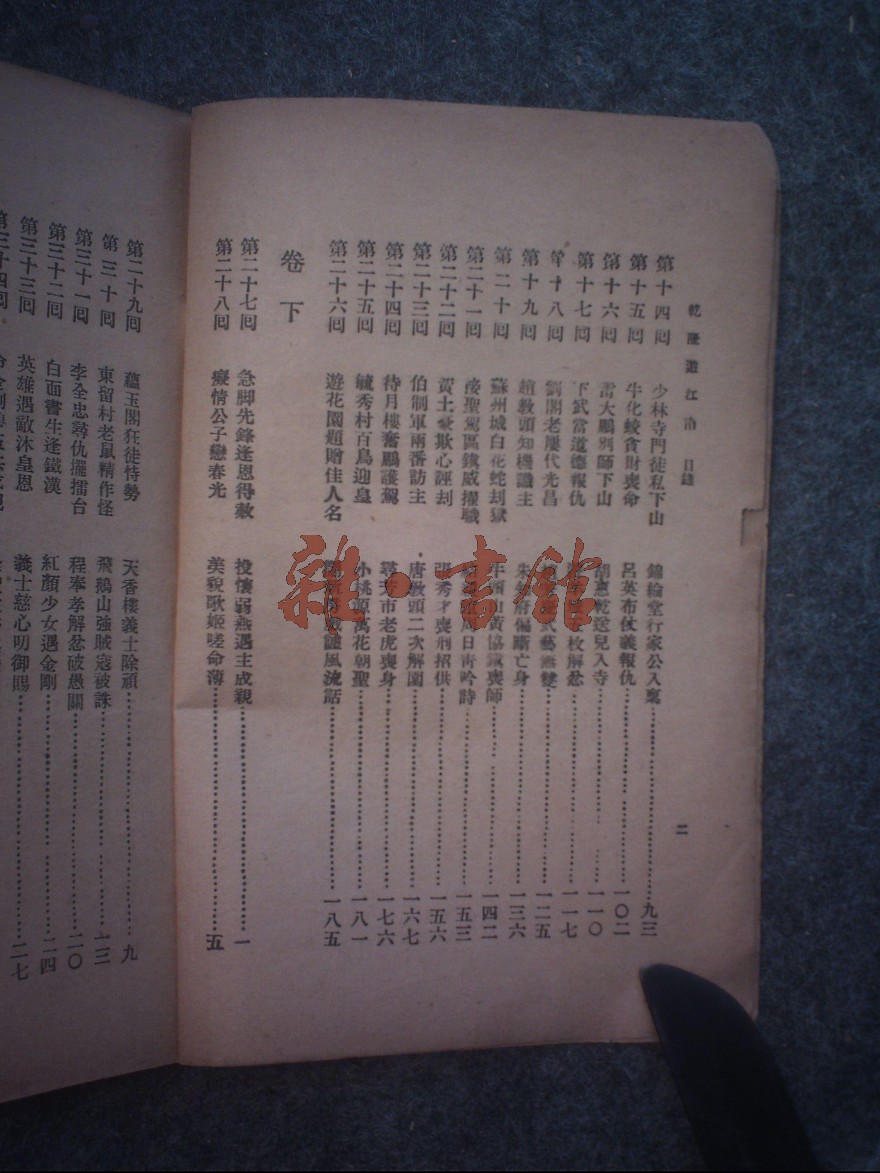 乾隆遊江南 目錄
第十四囘 少林寺門徒私下山 錦綸堂行家公入稟 九三
第十五囘 牛化蛟貪財喪命 呂英布仗義報仇 一〇二
第十六囘 雷大鵬別師下山 胡惠乾送兒入寺 一一〇
第十七囘 下武當道德報仇 枚解忿 一一七
第十八囘 劉閣老屢代光昌 武藝無雙 一二五
第十九囘 趙敎頭知機識主 朱知府偏斷亡身 一三六
第二十囘 蘇州城白花蛇刦獄 牛頭山黃協鎭喪師 一四二
第二十一囘 接聖駕區鎭威擢職 日靑吟詩 一五三
第二十二囘 黃土豪欺心誣刦 張秀才喪刑招供 一五六
第二十三囘 伯制軍兩番訪主 唐敎頭二次解圍 一六七
第二十四囘 待月樓奮鵬護駕 尋芳市老虎喪身 一七六
第二十五囘 毓秀村百鳥迎皇 小桃源萬花朝聖 一八一
第二十六囘 遊花園題贈佳人名 風流話 一八五
卷下
第二十七囘 急脚先鋒逢恩得赦 投懷弱燕遇主成親 一
第二十八囘 癡情公子戀春光 美貌歌姬嗟命薄 五
二
第二十九囘 蘊玉閣狂徒恃勢 天香樓義士除頑 九
第三十囘 東留村老鼠精作怪 飛鵝山強賊寇被誅 一三
第三十一囘 李全忠尋仇擺擂台 程奉孝解忿破愚關 二〇
第三十二囘 白面書生逢鐵漢 紅顏少女遇金剛 二四
第三十三囘 英雄遇敵沐皇恩 義士慈心叨御賜 二七
第三十四囘
雜·書館